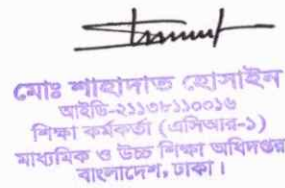 মোঃ শাহাদাত হোসাইন
আইডি-২১১৩৮১১০০১৬
শিক্ষা কর্মকর্তা (এসিআর-১)
মাধ্যমিক ও উচ্চ শিক্ষা অধিদপ্তর
বাংলাদেশ, ঢাকা।